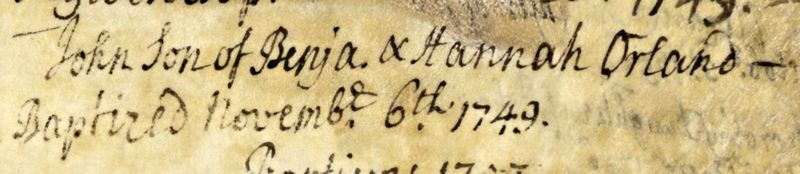 1749.
John Son of Benja. & Hannah Orland —
Baptized Novembr. 6th. 1749.